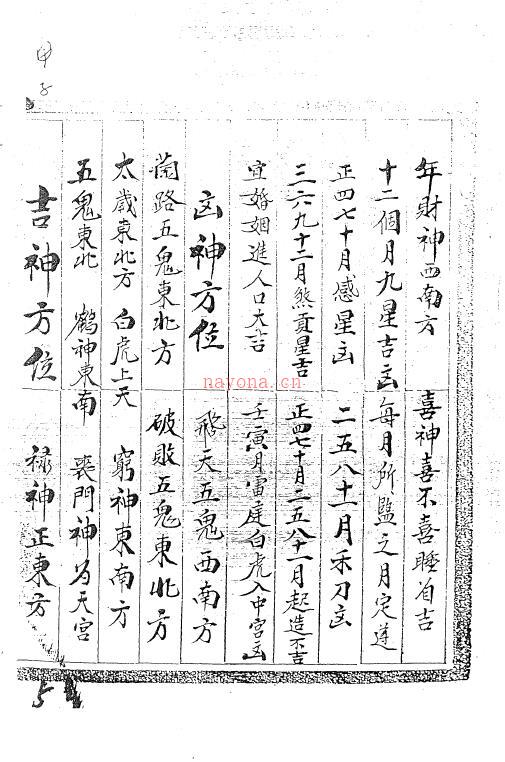 甲子
年財神西南方 喜神喜不喜睡自吉
十二個月九星吉凶每月所監之月定遵
正四七十月感星凶 二五八十一月禾刀凶
三六九十二月煞貢星吉 正四七十月二五八十一月起造不吉
宜婚姻進人口大吉 壬寅月雷庭白虎入中宮凶
凶神方位 飛天五鬼西南方
路五鬼東北方 破敗五鬼東北方
太歲東北方 白虎上天 窮神東南方
五鬼東北 鶴神東南 喪門神为天宮
吉神方位 祿神正東方
5
nayona.cn